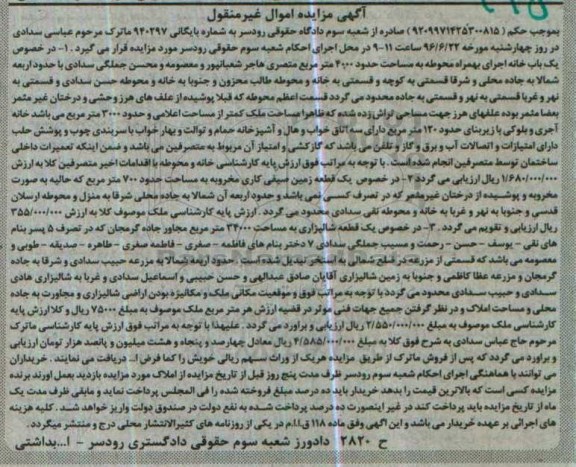 آگهی مزایده اموال غیرمنقول
بموجب حکم ( ۹۲۰۹۹۷۱۴۲۵۳۰۰۸۱۵) صادره از شعبه سوم دادگاه حقوقی رودسر به شماره بایگانی ۹۴۰۲۹۷ ماترک مرحوم عباسی سدادی
در روز چهارشنبه مورخه ۹۶/۶/۲۲ ساعت ۱۱-۹ در محل اجرای احکام شعبه سوم حقوقی رودسر مورد مزایده قرار می گیرد . ۱- در خصوص
یک باب خانه اجرای بهمراه محوطه به مساحت حدود ۴۰۰۰ متر مربع متصرفی هاجر شعبانپور و معصومه و محسن جملگی سدادی با حدود اربعه
شمالا به جاده محلی و شرقا قسمتی به کوچه و قسمتی به خانه و محوطه طالب محزون و جنوبا به خانه و محوطه حسن سدادی و قسمتی به
نهر و غربا قسمتی به نهر و قسمتی به جاده محدود می گردد قسمت اعظم محوطه که قبلا پوشیده از علف های هرز وحشی و درختان غیر مثمر
بعضا مثمر بوده علفهای هرز جهت مساحی تراش زده شده که ظاهرا مساحت ملک کمتر از مساحت اعلامی و حدود ۳۰۰۰ متر مربع می باشد خانه
آجری و بلوکی با زیربنای حدود ۱۲۰ متر مربع دارای سه اتاق خواب و هال و آشپزخانه حمام و توالت و بهار خواب با سربندی چوب و پوشش حلب
دارای امتیازات و اتصالات آب و برق و گاز و تلفن می باشد که گازکشی و امتیاز آن مربوط به متصرفین می باشد و ضمن اینکه تعمیرات داخلی
ساختمان توسط متصرفین انجام شده است . با توجه به مراتب فوق ارزش پایه کارشناسی خانه و محوطه با اقدامات اخیر متصرفین کلا به ارزش
۱/۶۸۰/۰۰۰/۰۰۰ ریال ارزیابی می گردد ۲- در خصوص یک قطعه زمین صیفی کاری مخروبه به مساحت حدود ۷۰۰ متر مربع که حالیه به صورت
مخروبه و پوشیده از درختان غیرمثمر که در تصرف کسی نمی باشد و حدود اربعه آن شمالا به جاده محلی شرقا به منزل و محوطه ارسلان
قدسی و جنوبا به نهر و غربا به خانه و محوطه تقی سدادی محدود می گردد . ارزش پایه کارشناسی ملک موصوف کلا به ارزش ۳۵۵/۰۰۰/۰۰۰
ریال ارزیابی و تقویم می گردد . ۳- در خصوص یک قطعه شالیزاری به مساحت ۳۴۰۰۰ متر مربع مجاور جاده گرمجان که در تصرف ۵ پسر بنام
های تقی – یوسف – حسن – رحمت و مسیب جملگی سدادی ۷ دختر بنام های فاطمه – صغری – فاطمه صغری – طاهره – صدیقه – طوبی و
معصومه می باشد که قسمتی از مزرعه در ضلع شمالی به استخر تبدیل شده است . حدود اربعه شمالا به مزرعه حبیب سدادی و شرقا به جاده
گرمجان و مزرعه عطا کاظمی و جنوبا به زمین شالیزاری آقایان صادق عبدالهی و حسن حبیبی و اسماعیل سدادی و غربا به شالیزاری هادی
سدادی و حبیب سدادی محدود می گردد با توجه به مراتب فوق و موقعیت مکانی ملک و مکانیزه بودن اراضی شالیزاری و مجاورت به جاده
محلی و مساحت املاک و در نظر گرفتن جمیع جهات فنی موثر در قضیه ارزش هر متر مربع ملک موصوف به مبلغ ۷۵۰۰۰ ریال و کلا ارزش پایه
کارشناسی ملک موصوف به مبلغ ۲/۵۵۰/۰۰۰/۰۰۰ ریال ارزیابی و برآورد می گردد . علیهذا با توجه به مراتب فوق ارزش پایه کارشناسی ماترک
مرحوم حاج عباس سدادی به شرح فوق کلا به مبلغ ۴/۵۸۵/۰۰۰/۰۰۰ ریال معادل چهارصد و پنجاه و هشت میلیون و پانصد هزار تومان ارزیابی
و برآورد می گردد که پس از فروش ماترک از طریق مزایده هریک از وراث سهم ریالی خویش را کما فرض ا... دریافت می نمایند . خریداران
می توانند با هماهنگی اجرای احکام شعبه سوم رودسر ظرف مدت پنج روز قبل از تاریخ مزایده از املاک مورد مزایده بازدید بعمل اورند برنده
مزایده کسی است که بالاترین قیمت را بدهد خریدار باید ده درصد مبلغ فروخته شده را فی المجلس پرداخت نماید و مابقی ظرف مدت یک
ماه از تاریخ مزایده باید پرداخت کند در غیر اینصورت ده درصد پرداخت شده به نفع دولت در صندوق دولت واریز خواهد شد . کلیه هزینه
های اجرائی بر عهده خریدار می باشد و این آگهی وفق ماده ۱۱۸ ق.ا.م در یکی از روزنامه های کثیرالانتشار محلی درج و منتشر میگردد .
ح ۲۸۲۰ دادورز شعبه سوم حقوقی دادگستری رودسر – ا...بداشتی